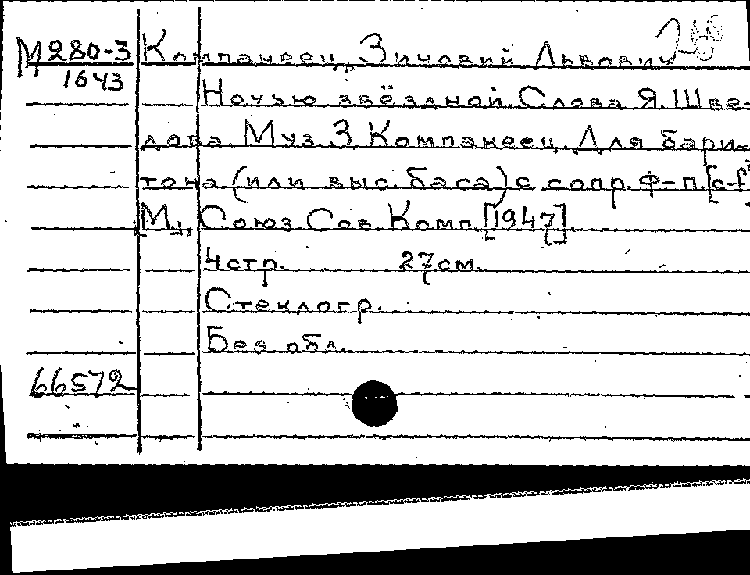 М280-3 Компанеец, Зиновий Львович
1643
Ночью звёздной. Слова Я. Шве-
дова. Муз. З. Компанеец. Для бари-
тона (или выс. баса) с сопр. ф-п. [c-f]
[М.], Союз Сов. Комп. [1947]
4 стр. 27 см.
Стеклогр.
Без обл.
66572